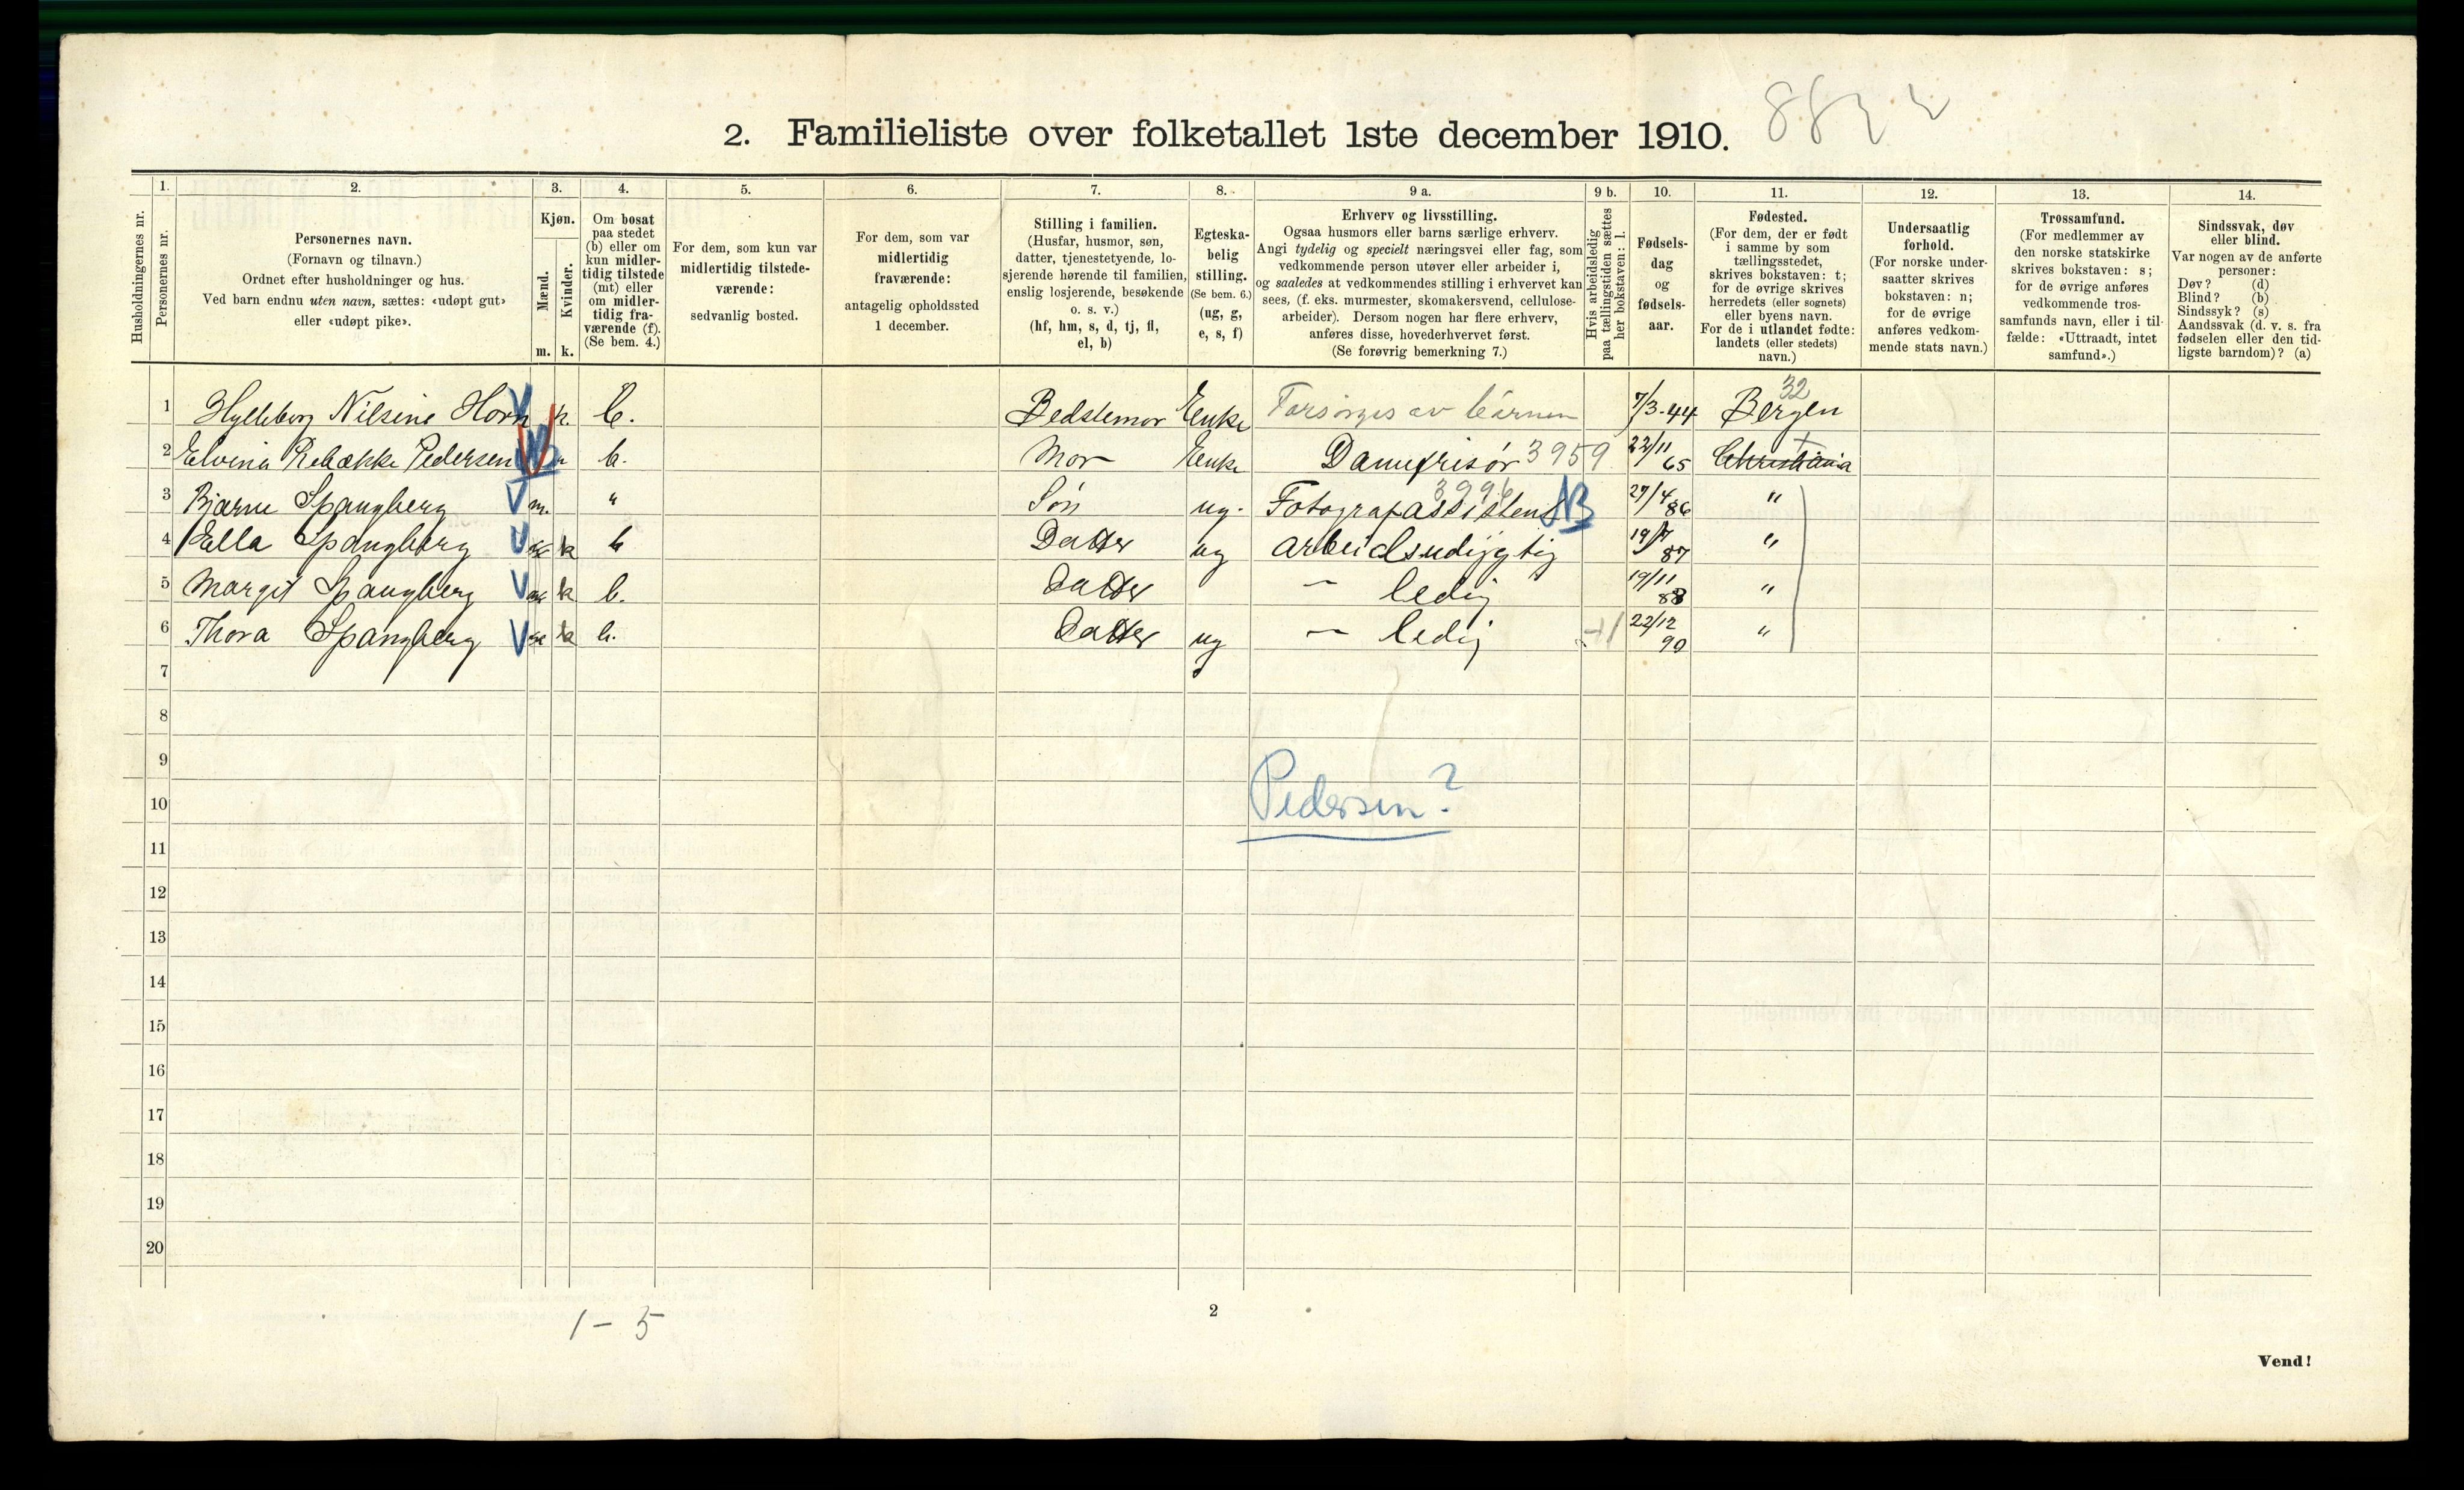 2. Familieliste over folketallet 1ste december 1910.
1. 2. 3. 4. 5. 6. 7. 8. 9 a. 9 b. 10. 11. 12. 13. 14.
Husholdningernes nr.
Personernes nr.
Personernes navn.
(Fornavn og tilnavn.)
Ordnet efter husholdninger og hus.
Ved barn endnu uten navn, sættes: «udøpt gut»
eller «udøpt pike».
Kjøn.
Mænd.
Kvinder.
m. k.
Om bosat
paa stedet
(b) eller om
kun midler-
tidig tilstede
(mt) eller
om midler-
tidig fra-
værende (f).
(Se bem. 4.)
For dem, som kun var
midlertidig tilstede-
værende:
sedvanlig bosted.
For dem, som var
midlertidig
fraværende:
antagelig opholdssted
1 december.
Stilling i familien.
(Husfar, husmor, søn,
datter, tjenestetyende, lo-
sjerende hørende til familien,
enslig losjerende, besøkende
o. s. v.)
(hf, hm, s, d, tj, fl,
el, b)
Egteska-
belig
stilling.
(Se bem. 6.)
(ug, g,
e, s, f)
Erhverv og livsstilling.
Ogsaa husmors eller barns særlige erhverv.
Angi tydelig og specielt næringsvei eller fag, som
vedkommende person utøver eller arbeider i,
og saaledes at vedkommendes stilling i erhvervet kan
sees, (f. eks. murmester, skomakersvend, cellulose-
arbeider). Dersom nogen har flere erhverv,
anføres disse, hovederhvervet først.
(Se forøvrig bemerkning 7.)
Hvis arbeidsledig
paa tællingstiden sættes
her bokstaven: l.
Fødsels-
dag
og
fødsels-
aar.
Fødested.
(For dem, der er født
i samme by som
tællingsstedet,
skrives bokstaven: t;
for de øvrige skrives
herredets (eller sognets)
eller byens navn.
For de i utlandet fødte:
landets (eller stedets)
navn.)
Undersaatlig
forhold.
(For norske under-
saatter skrives
bokstaven: n;
for de øvrige
anføres vedkom-
mende stats navn.)
Trossamfund.
(For medlemmer av
den norske statskirke
skrives bokstaven: s;
for de øvrige anføres
vedkommende tros-
samfunds navn, eller i til-
fælde: «Uttraadt, intet
samfund».)
Sindssvak, døv
eller blind.
Var nogen av de anførte
personer:
Døv? (d)
Blind? (b)
Sindssyk? (s)
Aandssvak (d. v. s. fra
fødselen eller den tid-
ligste barndom)? (a)
32
1 Nilsine Horn k. b. Bedstemor Enke Forsørges av børnene 7/3-44 Bergen
2 Elvina Rebække Pedersen b. Mor Enke Damefrisør 3959 22/11 65 Christiania
3 Bjarne Spangberg m. " Søn ug. Fotografassistent 27/4 86 "
4 Ella Spangberg k b Datter ug arbeidsudygtig 19/7 87 "
5 Margit Spangberg k b. Datter – ledig 19/11 88 "
6 Thora Spangberg k b. Datter ug – ledig 22/12 90 "
7
8
9
10
Pedersen?
11
12
13
14
15
16
17
18
19
20
1 - 5
2
Vend!